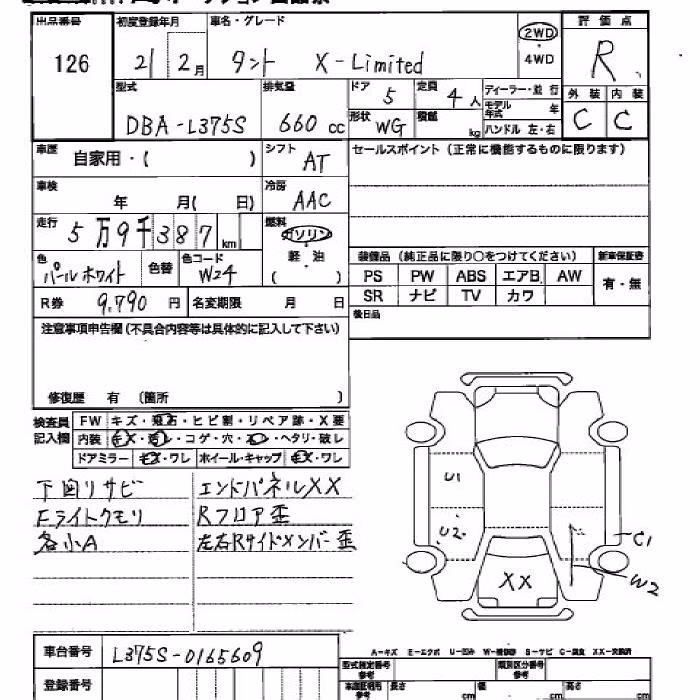 出品番号 初度登録年月 車名・グレード 2WD 評価点
126 21 2月 タント X-Limited 4WD R
型式 排気量 ドア 5 定員 4人 ディーラー・並 行 外装 内装
DBA-L375S 660 cc 形状 WG 積載 kg モデル年式 年 C C
ハンドル 左・右
車歴 自家用・( ) シフト AT セールスポイント (正常に機能するものに限ります)
車検 年 月( 日) 冷房 AAC
走行 5万9千387km 燃料 ガソリン
軽・油
( )
色 パールホワイト 色替 色コード W24
装備品 (純正品に限り○をつけてください) 新車保証書
PS PW ABS エアB AW 有・無
SR ナビ TV カワ
R券 9,790 円 名変期限 月 日
後日品
注意事項申告欄 (不具合内容等は具体的に記入して下さい)
修復歴 有 (箇所 )
検査員記入欄 FW キズ・飛石・ヒビ割・リペア跡・X要
内装 キズ・汚レ・コゲ・穴・ ・ヘタリ・破レ
ドアミラー キズ・ワレ ホイール・キャップ キズ・ワレ
下回リサビ エンドパネルXX
Fライトクモリ Rフロア歪
各小A 左右Rサイドメンバー歪
U1
U2
XX
C1
W2
車台番号 L375S-0165609
登録番号
A-キズ E-エクボ U-凹み W-補修跡 S-サビ C-腐食 XX-交換済
型式指定番号 参考 類別区分番号 参考
車庫証明用 参考 長さ cm 幅 cm 高さ cm